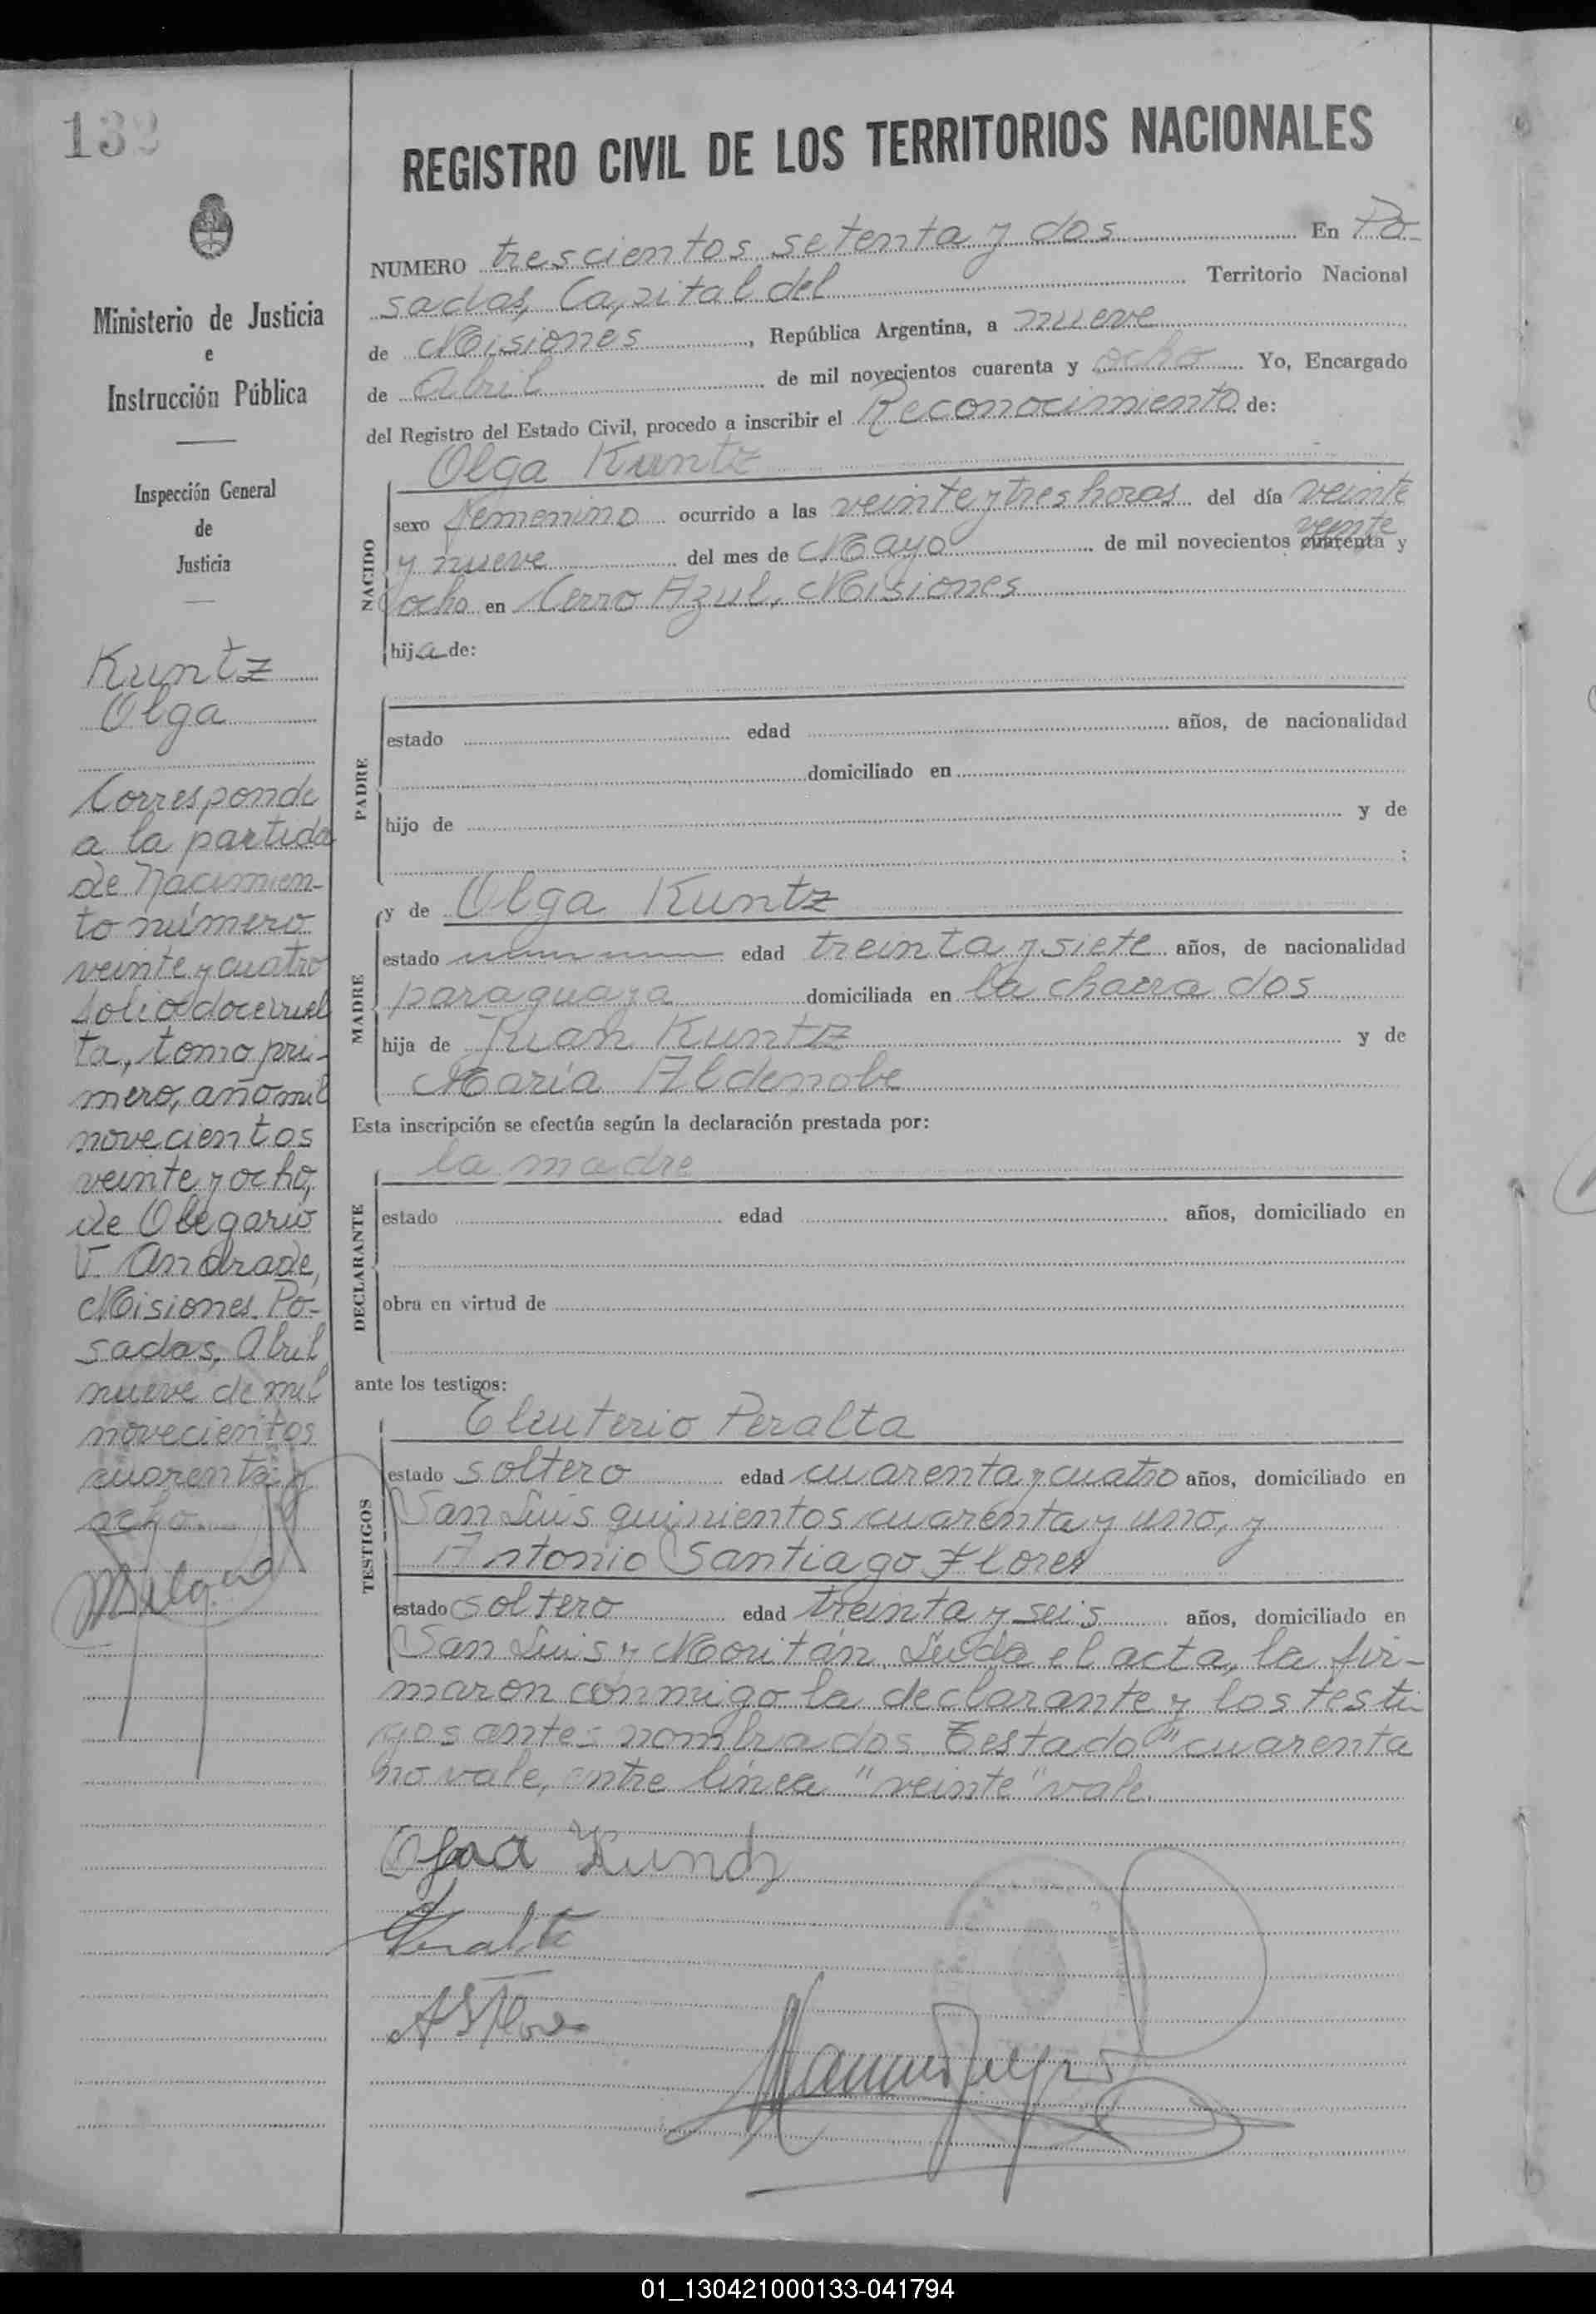 132
REGISTRO CIVIL DE LOS TERRITORIOS NACIONALES
NUMERO trescientos setenta y dos En Po-
sadas, Capital del Territorio Nacional
de Misiones, República Argentina, a nueve
de Abril de mil novecientos cuarenta y ocho Yo, Encargado
del Registro del Estado Civil, procedo a inscribir el Reconocimiento de:
Olga Kuntz
NACIDO
sexo femenino ocurrido a las veinte y tres horas del día veinte
veinte
y nueve del mes de Mayo de mil novecientos cuarenta y
ocho en Cerro Azul, Misiones
hija de:
PADRE
estado edad años, de nacionalidad
domiciliado en
hijo de y de
;
MADRE
y de Olga Kuntz
estado edad treinta y siete años, de nacionalidad
paraguaya domiciliada en la chacra dos
hija de Juan Kuntz y de
María Aldenobe
Esta inscripción se efectúa según la declaración prestada por:
la madre
DECLARANTE
estado edad años, domiciliado en
obra en virtud de
ante los testigos:
TESTIGOS
Eleuterio Peralta
estado soltero edad cuarenta y cuatro años, domiciliado en
San Luis quinientos cuarenta y uno, y
Antonio Santiago Flores
estado soltero edad treinta y seis años, domiciliado en
San Luis y Moritán. Leída el acta, la fir-
maron conmigo la declarante y los testi-
gos antes nombrados Testado "cuarenta
no vale, entre línea "veinte" vale.
Olga Kundz
Peralta
ASFlores
Ministerio de Justicia
e
Instrucción Pública
Inspección General
de
Justicia
Kuntz
Olga
Corresponde
a la partida
de Nacimien-
to número
veinte y cuatro
folio doce vuel
ta, tomo pri-
mero, año mil
novecientos
veinte y ocho,
de Olegario
V. Andrade,
Misiones. Po-
sadas, Abril
nueve de mil
novecientos
cuarenta y
ocho
01_130421000133-041794